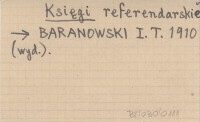 Księgi referendarskie
→ BARANOWSKI I. T. 1910
(wyd.).